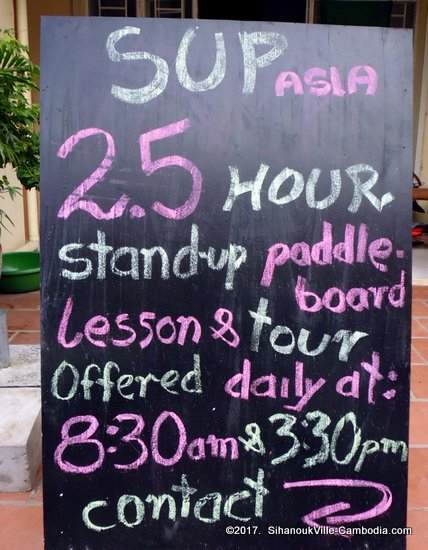 SUP ASIA
2.5 HOUR
stand-up paddle-
board
Lesson & tour
Offered daily at:
8:30am & 3:30pm
contact
©2017. SihanoukVille-Cambodia.com